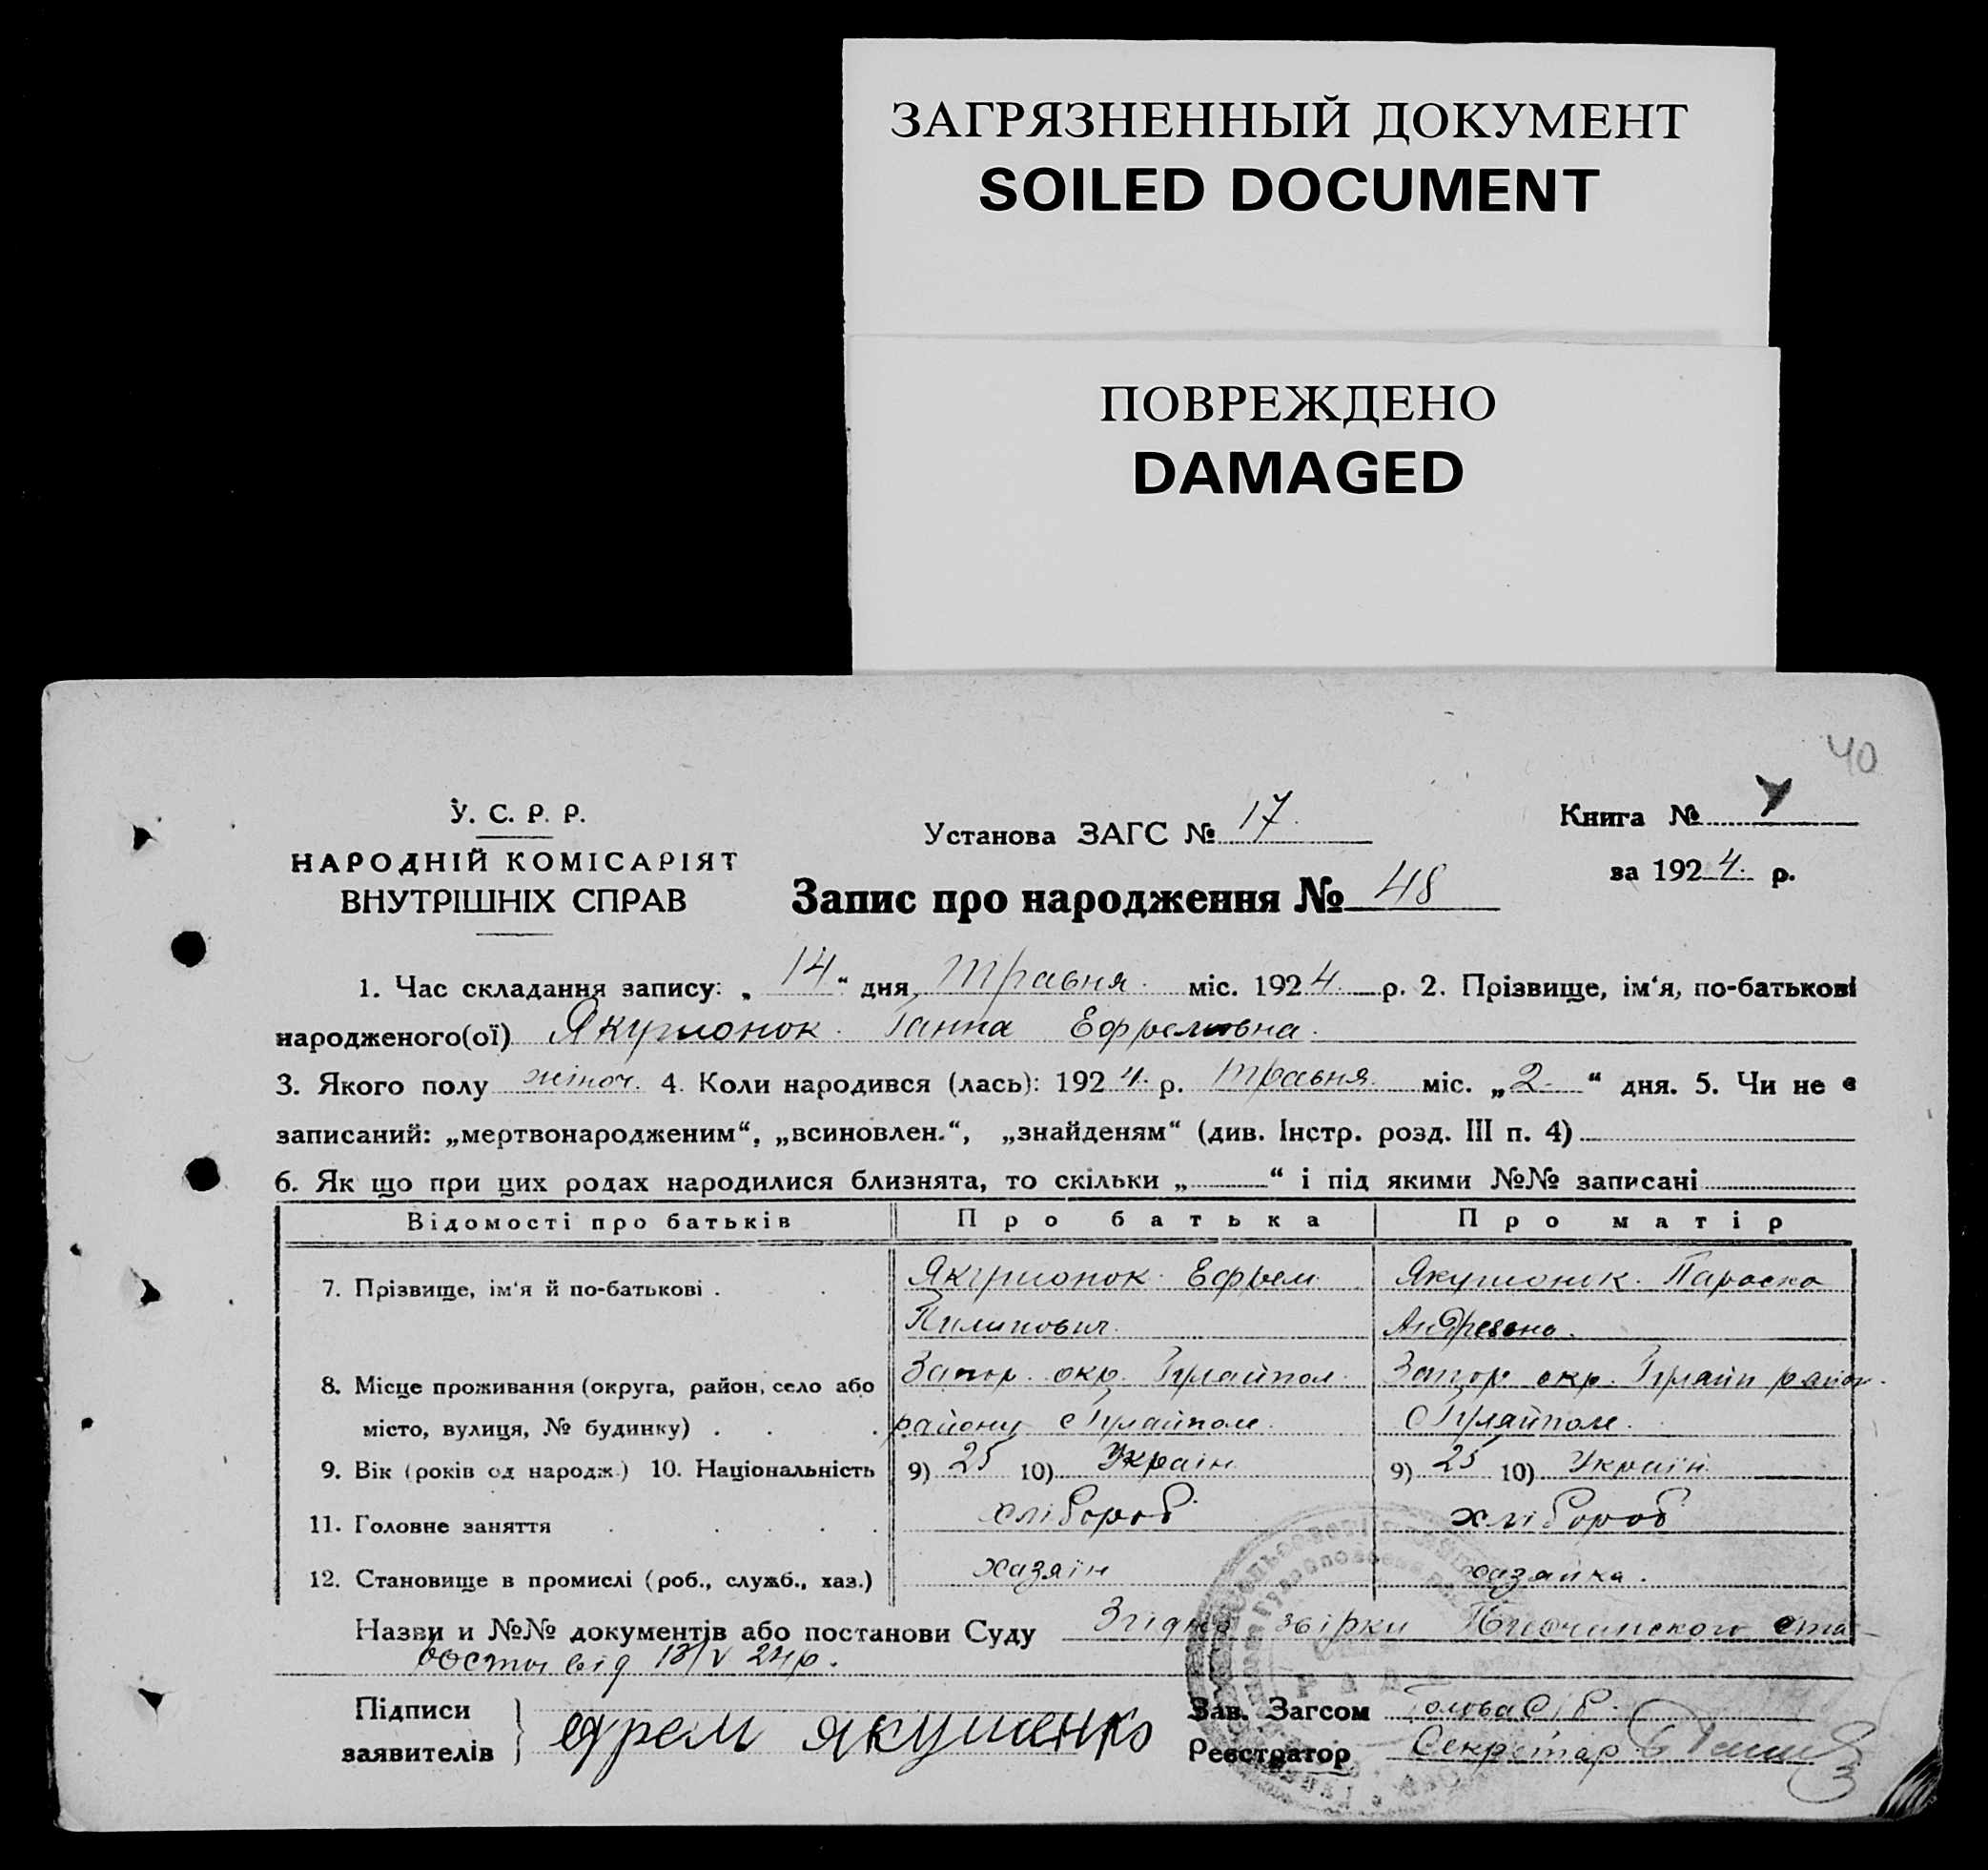 ЗАГРЯЗНЕННЫЙ ДОКУМЕНТ
SOILED DOCUMENT
ПОВРЕЖДЕНО
DAMAGED
40
У. С. Р. Р.
НАРОДНІЙ КОМІСАРІЯТ
ВНУТРІШНІХ СПРАВ
Установа ЗАГС № 17.
Книга №
за 1924 р.
Запис про народження № 48
1. Час складання запису: „ 14 “ дня травня міс. 1924 р. 2. Прізвище, ім‘я, по-батькові
народженого(ої) Якушонок Ганна Ефремовна.
3. Якого полу жіноч. 4. Коли народився (лась): 1924 р. травня міс. „ 2 “ дня. 5. Чи не є
записаний: „мертвонародженим“, „всиновлен.“, „знайденям“ (див. Інстр. розд. III п. 4)
6. Як що при цих родах народилися близнята, то скільки „ “ і під якими №№ записані
Відомості про батьків Про батька Про матір
7. Прізвище, ім‘я й по-батькові . Якушонок Ефрем Якушонок Параска
Пилипович Андреевна.
8. Місце проживання (округа, район, село або Запор. окр. Гуляйпол. Запор окр. Гуляйп район.
місто, вулиця, № будинку) . району с Гуляйполе. С Гуляйполе.
9. Вік (років од народж.) 10. Національність 9) 25 10) Україн 9) 25 10) Україн
11. Головне заняття хлібороб хлібороб
12. Становище в промислі (роб., служб., хаз.) хазяін хазяйка.
Назви и №№ документів або постанови Суду Згідно звірки ста-
рости від 13/V 24 р.
Підписи
заявителів
ефрем якушенко
Зав. Загсом Голова С/Р.
Реєстратор Секретар